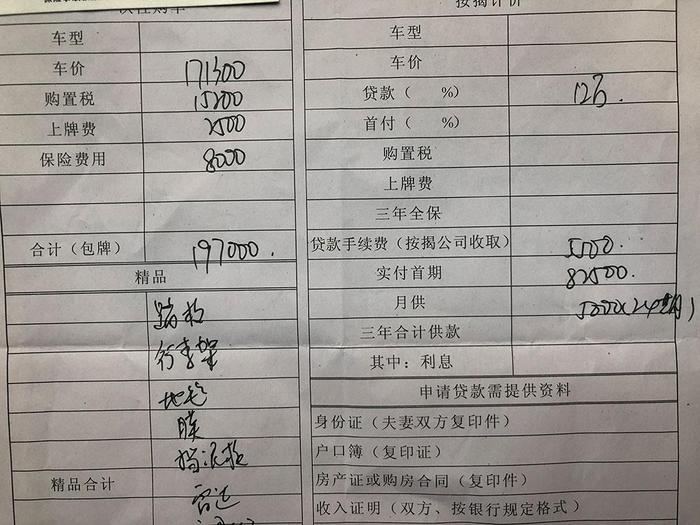 按揭计价
车型
车价 171300
购置税 15200
上牌费 2500
保险费用 8000
合计（包牌） 197000.
精品
踏板
行李架
地毯
膜
挡泥板
精品合计 雷达
车型
车价
贷款（ %） 12万.
首付（ %）
购置税
上牌费
三年全保
贷款手续费（按揭公司收取） 5500.
实付首期 82500.
月供 5000×24个月)
三年合计供款
其中：利息
申请贷款需提供资料
身份证（夫妻双方复印件）
户口簿（复印证）
房产证或购房合同（复印件）
收入证明（双方、按银行规定格式）